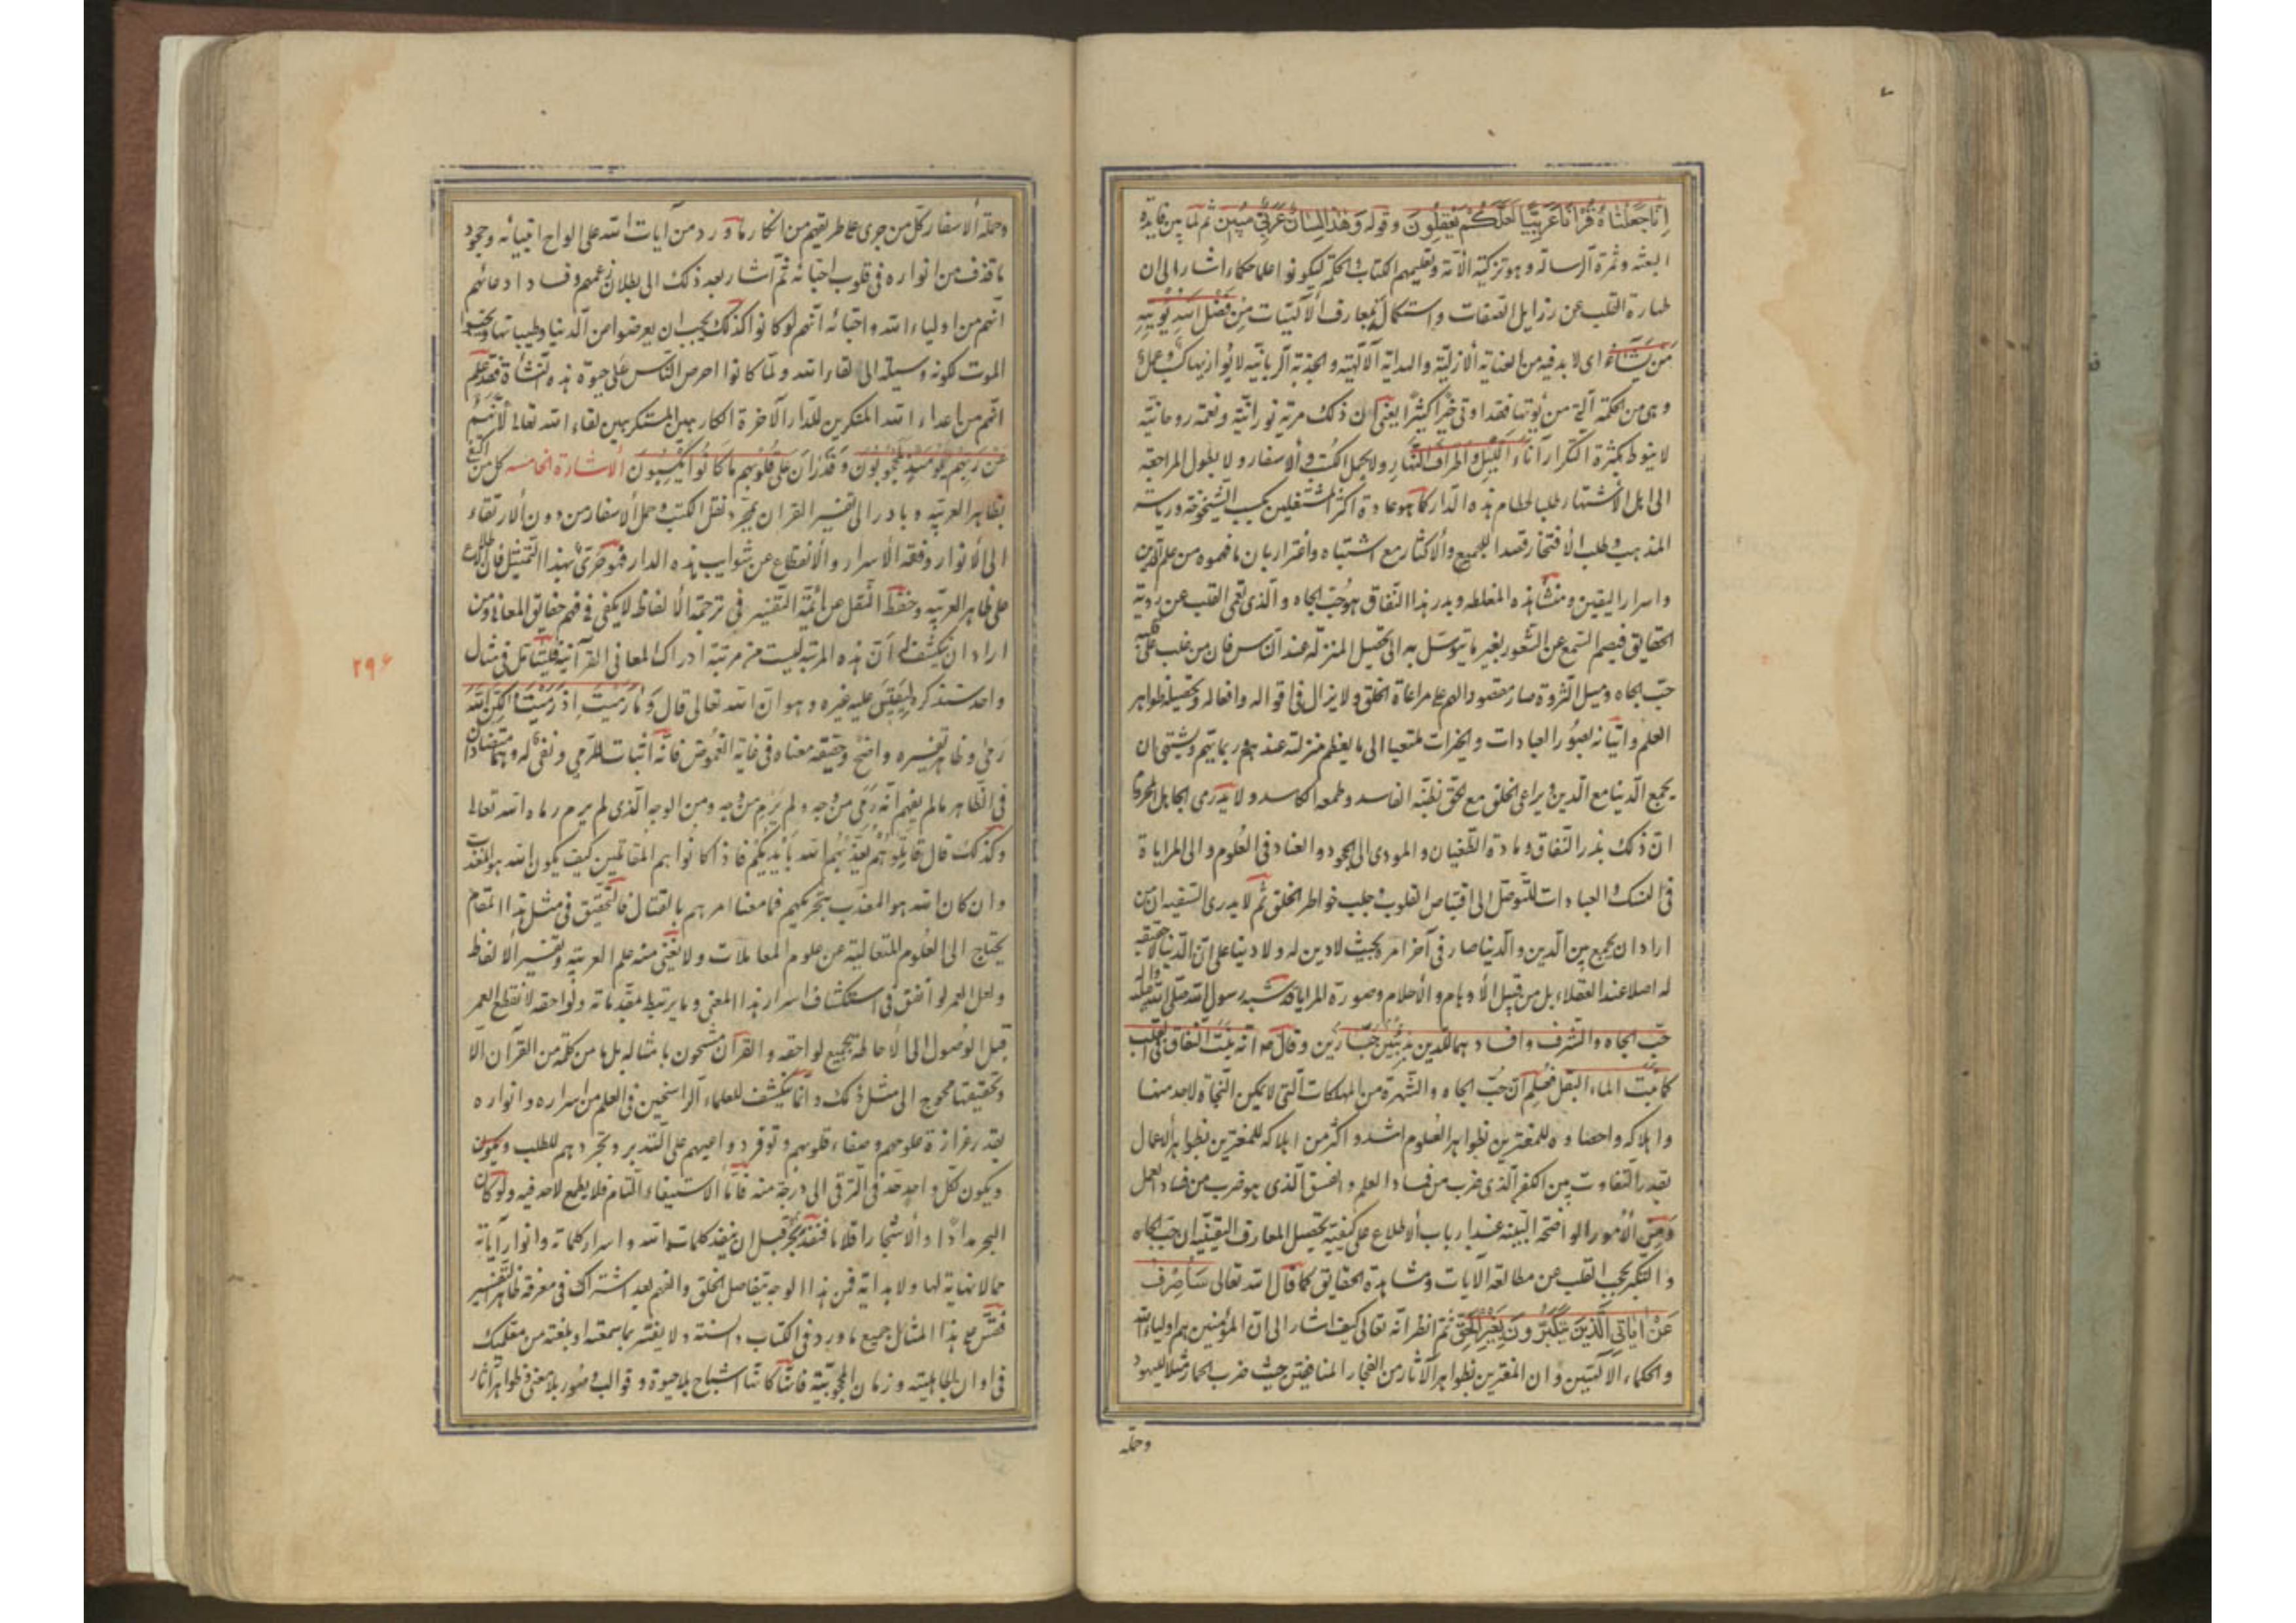 انا جعلناه قرآنا عربيا لعلكم تعقلون وقوله وهذا لسان عربي مبين ثم لما بين فايدة
البعثة وثمرة الرسالة وهو تزكية الامة وتعليمهم الكتاب والحكمة ليكونوا علما حكماء اشار الى ان
طهارة القلب عن رذايل الصفات واستكماله بمعارف الآلهيات من فضل الله يؤتيه
من يشاء اى لا بد فيه من العناية الازلية والهداية الآلهية والجذبة الربانية لا يوازيها كسب وعمل
وهى من الحكمة التى من يؤتها فقد اوتى خيرا كثيرا يعنى ان ذلك مرتبة نورانية ونعمة روحانية
لا ينوط بكثرة التكرار آناء الليل واطراف النهار ولا بحمل الكتب والاسفار ولا بطول المراجعة
الى اهل الاشتهار طلبا لحطام هذه الدار كما هو عادة اكثر المشتغلين بحسب الشيخوخة ورياسة
المذهب وطلب الافتخار قصدا للجميع والاكثار مع اشتباه واغترار بان ما فهموه من علم الدين
واسرار اليقين ومنشأ هذه المغلطة وبدر هذا النفاق هو حب الجاه والذى يعمى القلب عن روية
الحقايق فيصم السمع عن الشعور بغير ما يتوسل به الى تحصيل المنزلة عند الناس فان من غلب على قلبه
حب الجاه وميل الثروة صار مقصود الهم على مراعاة الخلق ولا يزال فى اقواله وافعاله وتحصيله ظواهر
العلم واتيانه بصور العبادات والخيرات ملتفتا الى ما يعظم منزلته عندهم وربما يتهم ويشتهى ان
يجمع الدنيا مع الدين ويراعى الخلق مع الحق بظنه الفاسد وطمعه الكاسد ولا يدرى الجاهل المحروم
ان ذلك بذر النفاق ومادة الطغيان والمودى الى الجحود والعناد فى العلوم والى المراياة
فى النسك والعبادات للتوصل الى اقتباص القلوب وجلب خواطر الخلق ثم لا يدرى السفيه ان من
اراد ان يجمع بين الدين والدنيا صار فى آخر امره بحيث لا دين له ولا دنيا على ان الدنيا لا حقيقة
له اصلا عند العقلاء بل من قبيل الاوهام والاحلام وصورة المراياة قد شبه رسول الله صلى الله عليه وآله
حب الجاه والشرف وافسادهما للدين بذئبين جبارين وقال ص انه ينبت النفاق فى القلب
كما ينبت الماء البقل فعلم ان حب الجاه والشهرة من المهلكات التى لا يمكن النجاة لاحد منها
واهلاكه واحصاده للمغترين بظواهر العلوم اشد واكثر من اهلاكه للمغترين بظواهر الاعمال
بقدر التفاوت بين الكفر الذى ضرب من فساد العلم والفسق الذى هو ضرب من فساد العمل
ومن الامور الواضحة البينة عند ارباب الاطلاع على كيفية تحصيل المعارف اليقينية ان حب الجاه
والتكبر يحجب القلب عن مطالعة الآيات ومشاهدة الحقايق كما قال الله تعالى ساصرف
عن آياتى الذين يتكبرون بغير الحق ثم انظر انه تعالى كيف اشار الى ان المؤمنين هم اولياء الله
والحكماء الآلهيين وان المغترين بظواهر الآثار من الفجار المنافقين حيث ضرب الحمار مثلا لليهود
وحملة
وحملة الاسفار وكل من جرى على طريقتهم من انكار ما ورد من آيات الله على الواح انبيائه وجحود
ما قذف من انواره فى قلوب احبائه ثم اشار بعد ذلك الى بطلان زعمهم وفساد ادعائهم
انهم من اولياء الله واحبائه انهم لو كانوا كذلك يجب ان يعرضوا من الدنيا وطيباتها ويتمنوا
الموت لكونه وسيلة الى لقاء الله ولما كانوا احرص الناس على حيوة هذه النشأة فقد علم
انهم من اعداء الله المنكرين للدار الآخرة الكارهين المستكرهين لقاء الله تعالى لانهم
عن ربهم يومئذ لمحجوبون وقد ران على قلوبهم ما كانوا يكسبون الاشارة الخامسة كل من اكتفى
بظاهر العربية وبادر الى تفسير القران بمجرد نقل الكتب وحمل الاسفار من دون الارتقاء
الى الانوار وفقه الاسرار والانقطاع عن شوايب هذه الدار فهو حرى بهذا التمثيل فان الاطلاع
على ظاهر العربية وحفظ النقل عن ائمة التفسير فى ترجمة الالفاظ لا يكفى فى فهم حقايق المعانى ومن
اراد ان يكشف له ان هذه المرتبة ليست من مرتبة ادراك المعانى القرآنية فليتأمل فى مثال
واحد سنذكره ليقيس عليه غيره وهو ان الله تعالى قال وما رميت اذ رميت ولكن الله
رمى وظاهر تفسيره واضح وحقيقة معناه فى غاية الغموض فانه اثبات للرمى ونفى له وهما متضادان
فى الظاهر ما لم يفهم انه رمى من وجه ولم يرم من وجه ومن الوجه الذى لم يرم رماه الله تعالى
وكذلك قال قاتلوهم يعذبهم الله بايديكم فاذا كانوا هم المقاتلين كيف يكون الله هو المعذب
وان كان الله هو المعذب بتحريكهم فما معنا امرهم بالقتال فالتحقيق فى مثل هذا المقام
يحتاج الى العلوم المتعالية عن علوم المعاملات ولا يغنى منه علم العربية وتفسير الالفاظ
ولعل العمر لو انفق فى استكشاف اسرار هذا المعنى وما يرتبط بمقدماته ولواحقه لانقطع العمر
قبل الوصول الى الاحاطة بجميع لواحقه والقرآن مشحون بامثاله بل ما من كلمة من القرآن الا
وتحقيقها محوج الى مثل ذلك وانما ينكشف للعلماء الراسخين فى العلم من اسراره وانواره
بقدر غزارة علومهم وصفاء قلوبهم وتوفر دواعيهم على التدبر وتجردهم للطلب ويكون
ويكون لكل واحد حد فى الترقى الى درجة منه فاما الاستيفاء التام فلا يطمع لاحد فيه ولو كان
البحر مدادا والاشجار اقلاما فنفد البحر قبل ان ينفد كلمات الله واسرار كلماته وانوار آياته
مما لا نهاية لها ولا بداية فمن هذا الوجه يتفاضل الخلق والفهم بعد اشتراك فى معرفة ظاهر التفسير
فقس على هذا المثال جميع ما ورد فى الكتاب والسنة ولا يغتر بما سمعته او بلغته من معلميك
فى اوان الجاهلية وزمان المحجوبية فانها كانها اشباح بلا حيوة وقوالب وصور بلا معنى وظواهر آثار
۲۹۶